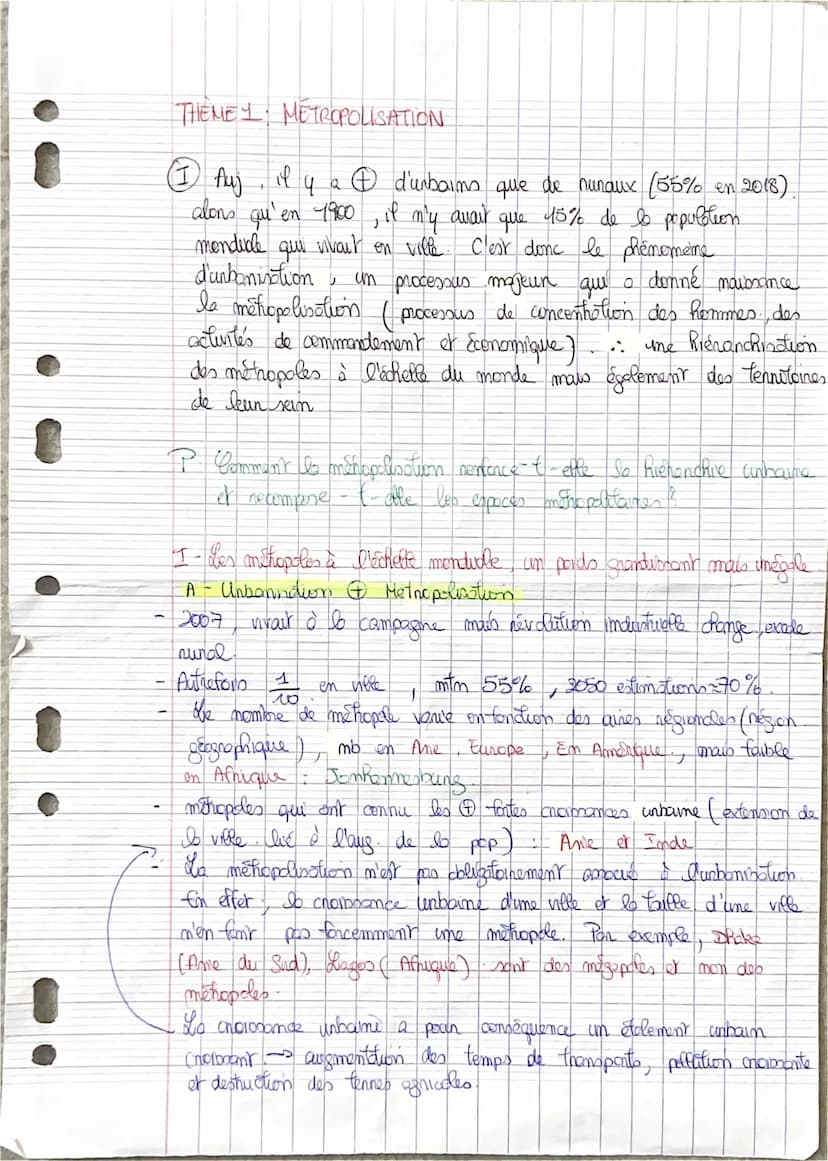 THÈME 1 : MÉTROPOLISATION
I Auj, il y a ⊕ d'urbains que de ruraux (55% en 2018).
alors qu'en 1900, il n'y avait que 15% de la population
mondiale qui vivait en ville. C'est donc le phénomène
d'urbanisation, un processus majeur qui a donné naissance
la métropolisation (processus de concentration des hommes, des
activités de commandement et économique). ∴ une hiérarchisation
des métropoles à l'échelle du monde mais également des territoires
de leur sein
P. Comment la métropolisation renforce-t-elle la hiérarchie urbaine
et recompose-t-elle les espaces métropolitaines ?
I - Les métropoles à l'échelle mondiale, un poids grandissant mais inégale.
A - Urbanisation ⊕ Métropolisation
- 2007, vivait à la campagne mais révolution industrielle change, exode
rural.
- Autrefois 1/10 en ville, mtn 55%, 2050 estimations ≈70%.
- Le nombre de métropole varie en fonction des aires régionales (région
géographique), nb en Asie, Europe, En Amérique, mais faible
en Afrique :
- métropoles qui ont connu les ⊕ fortes croissances urbaine (extension de
la ville lié à l'aug. de la pop) : Asie et Inde
- La métropolisation n'est pas obligatoirement associé à l'urbanisation.
En effet, la croissance urbaine d'une ville et la taille d'une ville
n'en font pas forcemment une métropole. Par exemple, Dhaka
(Asie du Sud), Lagos (Afrique) sont des mégapoles et non des
métropoles.
La croissance urbaine a pour conséquence un étalement urbain
croissant → augmentation des temps de transports, pollution croissante
et destruction des terres agricoles.